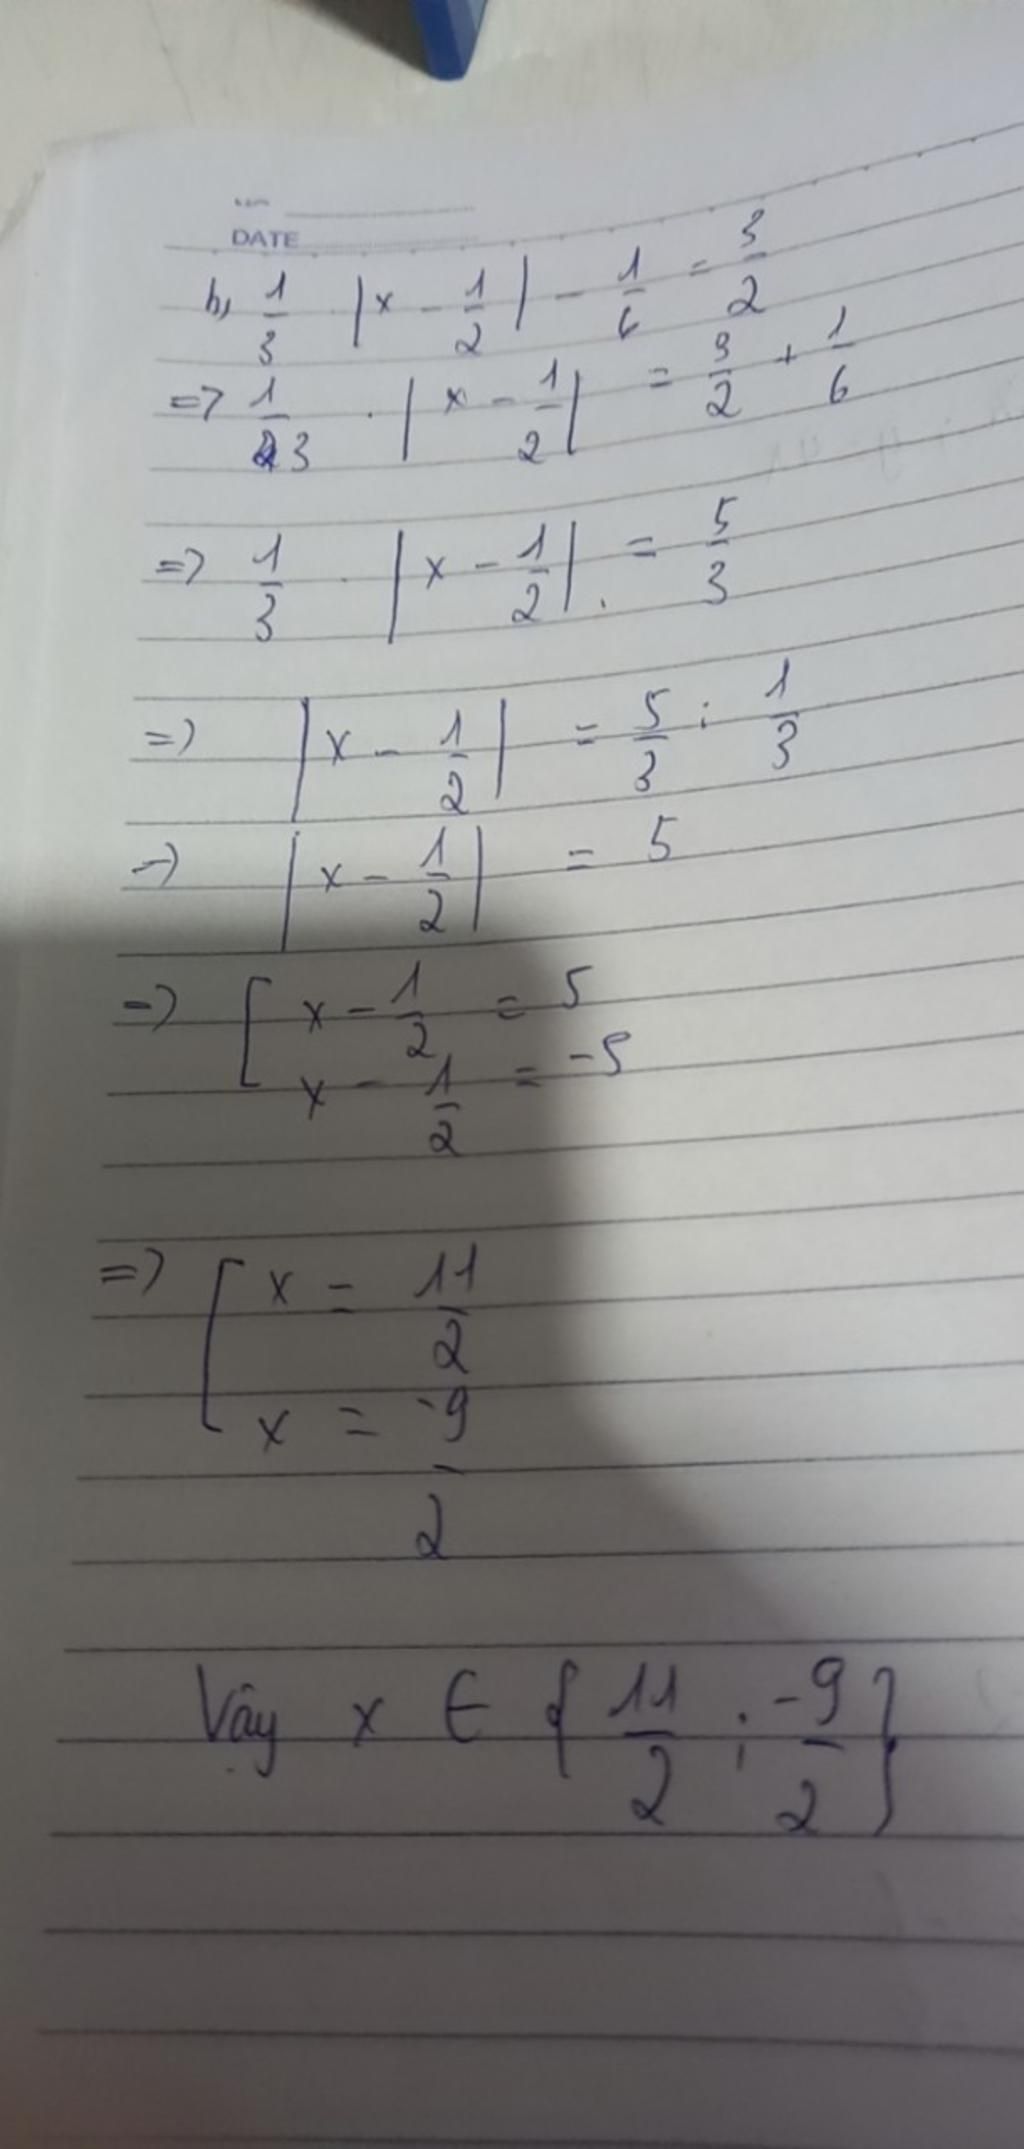 DATE
b, 1/3 . |x - 1/2| - 1/6 = 3/2
=> 1/3 . |x - 1/2| = 3/2 + 1/6
=> 1/3 . |x - 1/2| = 5/3
=> |x - 1/2| = 5/3 : 1/3
=> |x - 1/2| = 5
=> [ x - 1/2 = 5
x - 1/2 = -5
=> [ x = 11/2
x = -9/2
Vậy x ∈ { 11/2 ; -9/2 }